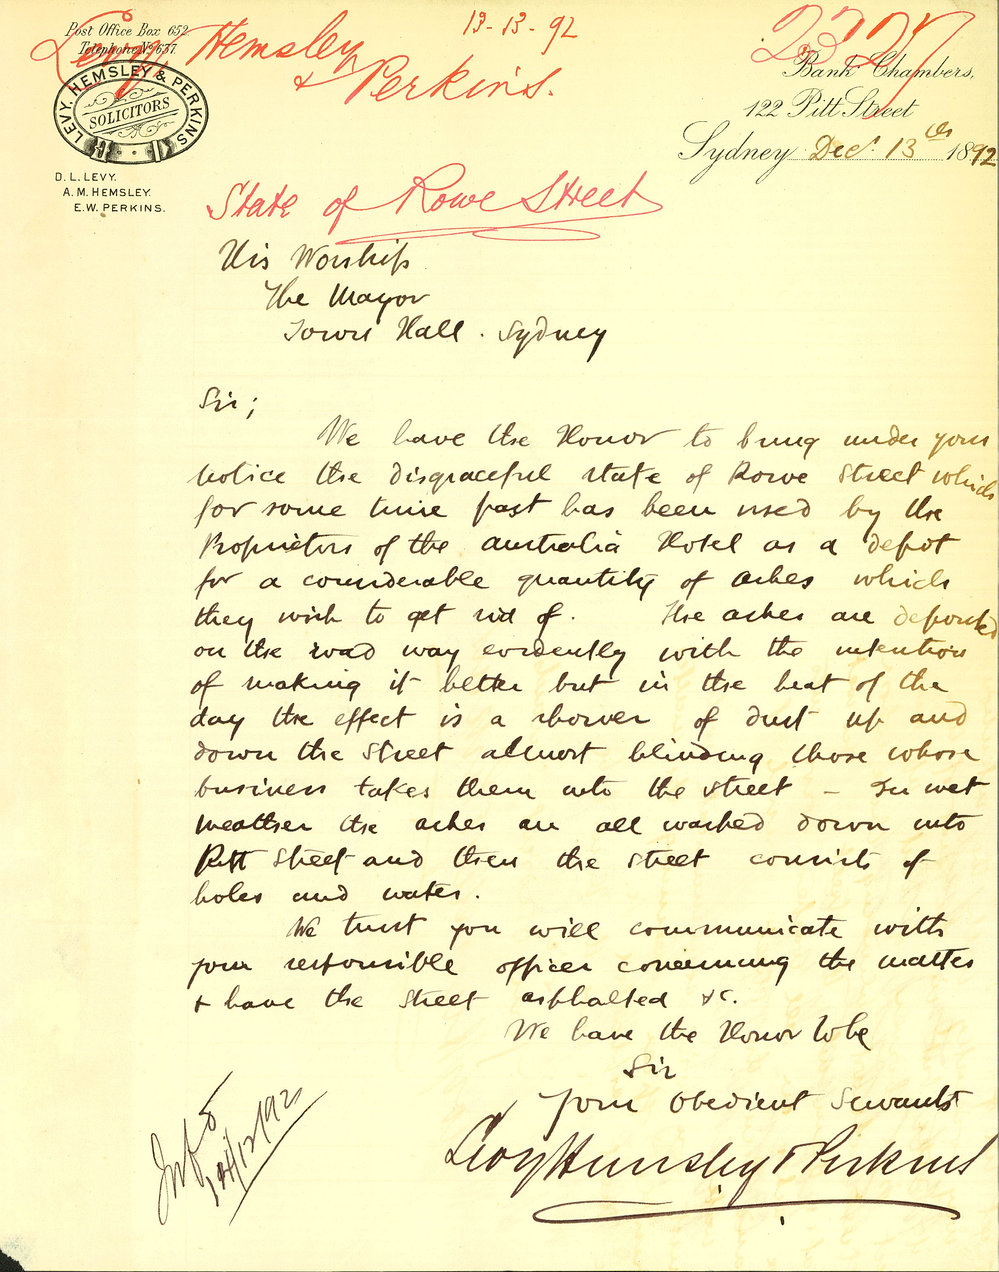 Post Office Box 652.
Telephone No 637.
Levy Hemsley
& Perkins.
13-13-92
2327
LEVY, HEMSLEY & PERKINS
SOLICITORS
D. L. LEVY.
A. M. HEMSLEY.
E. W. PERKINS.
Bank Chambers,
122 Pitt Street
Sydney Dec. 13th 1892
State of Rowe Street
His Worship
The Mayor
Town Hall. Sydney
Sir;
We have the Honor to bring under your
notice the disgraceful state of Rowe Street which
for some time past has been used by the
Proprietors of the Australia Hotel as a depot
for a considerable quantity of ashes which
they wish to get rid of. The ashes are deposited
on the road way evidently with the intention
of making it better but in the heat of the
day the effect is a shower of dust up and
down the Street almost blinding those whose
business takes them into the street – In wet
weather the ashes are all washed down into
Pitt Street and then the street consists of
holes and water.
We trust you will communicate with
your responsible officer concerning the matter
& have the Street asphalted &c.
We have the Honor to be
Sir
Your Obedient Servants
Levy Hemsley & Perkins
14/12/92